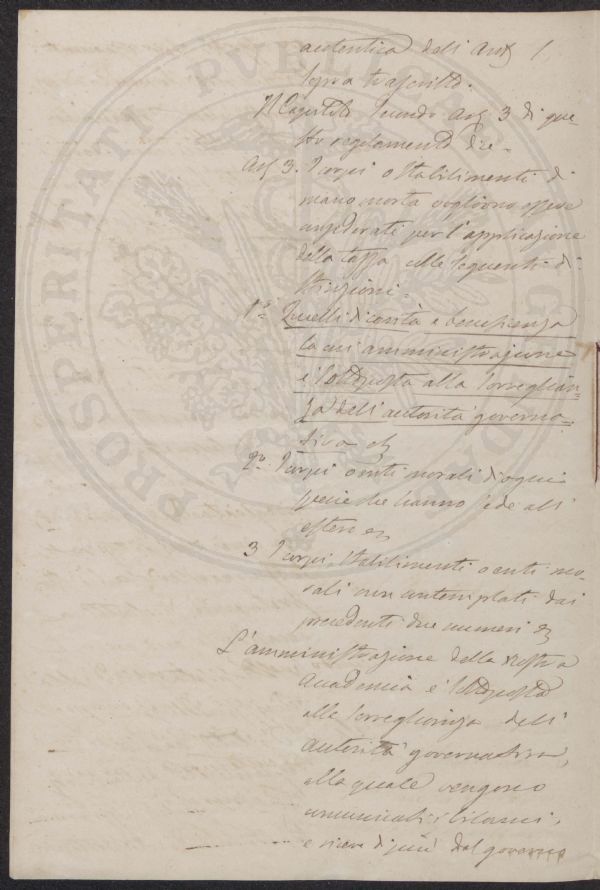 autentica dell' Art 1.
sopra trascritto.
Il Capitolo secondo Art 3 di que
sto regolamento dice.
Art 3. I corpi o stabilimenti di
mano morta vogliono essere
considerati per l'applicazione
della tassa colle seguenti di
stinzioni.
1.o Quelli di carità e beneficenza
la cui amministrazione
è sottoposta alla sorveglian-
za dell' autorità governa-
tiva
2.o I corpi o enti morali d'ogni
specie che hanno sede all'
estero
3 I corpi, stabilimenti o enti mo-
rali non contemplati dai
precedenti due numeri
L'amministrazione della nostra
Accademia è sottoposta
alla sorveglianza dell'
autorità governativa,
alla quale vengono
comunicati i bilanci,
e riceve di più dal governo
PROSPERITATI PVBLICAE